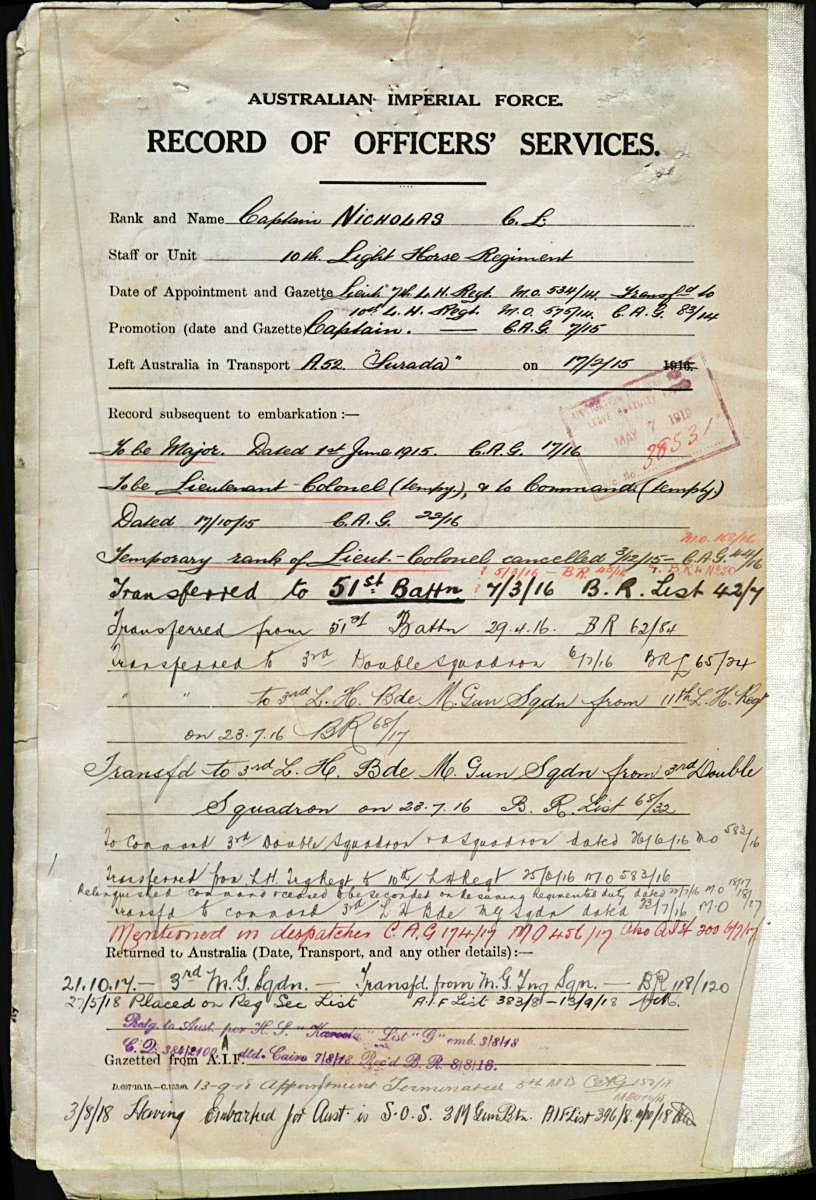 AUSTRALIAN IMPERIAL FORCE.
RECORD OF OFFICERS' SERVICES.
Rank and Name Captain NICHOLAS C. L.
Staff or Unit 10th Light Horse Regiment
Date of Appointment and Gazette Lieut 7th L. H. Regt. M.O. 534/14. Transfd to
10th L. H. Regt. M.O. 575/14. C.A.G. 83/14
Promotion (date and Gazette) Captain. — C.A.G. 7/15
Left Australia in Transport A52 "Surada" on 17/2/15 1916.
Record subsequent to embarkation :—
MAY 7 1919
38531
To be Major. Dated 1st June 1915. C.A.G. 17/16
To be Lieutenant-Colonel (tempy), & to Command (temply)
Dated 17/10/15 C.A.G. 22/16
Temporary rank of Lieut.-Colonel cancelled 3/12/15 – C.A.G. 44/16
5/3/16 – BR
Transferred to 51st Battn 7/3/16 B. R. List 42/7
Transferred from 51st Battn 29.4.16. BR 62/84
Transferred to 3rd Double Squadron 6/7/16 BRL 65/34
" " to 3rd L. H. Bde M. Gun Sqdn from 11th L. H. Regt
on 23.7.16 BR 68/17
Transfd to 3rd L. H. Bde M. Gun Sqdn from 3rd Double
Squadron on 23.7.16 B. R. List 68/32
To Command 3rd Double Squadron & a Squadron dated /6/16 MO 583/16
Transferred from L.H. Trg Regt to 10th L H Regt MO 583/16
Relinquished command & ceased to be seconded on resuming Regimental duty dated 22/7/16 M O 18/17
Transfd to command 3rd L H Bde M G Sqdn dated 23/7/16 M O 18/17
Mentioned in despatches C.A.G 174/17 MO 456/17 also A.I.F. 200 6/7/17
Returned to Australia (Date, Transport, and any other details):—
21.10.17. – 3rd M.G. Sqdn. — Transfd. from M.G. Tng Sqn. — BR 118/120
27/5/18 Placed on Reg Sec List A.I.F List 383/8 – 13/9/18
Retg. to Aust. per H. S. "Karoola" List "G" emb. 3/8/18
C.D. 384/2102. dtd. Cairo 7/8/18. Rec'd B. R. 8/8/18.
Gazetted from A.I.F.
13-9-18 Appointment Terminated 5th MD CAG
3/8/18 Having Embarked for Aust. is S.O.S. 3 M Gun Btn. AIF List 396/8.